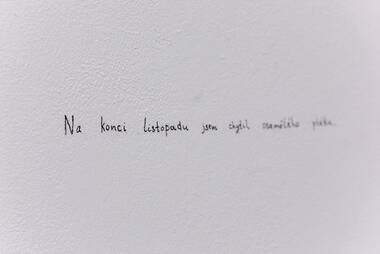 Na konci listopadu jsem chytil osamělého ptáka.